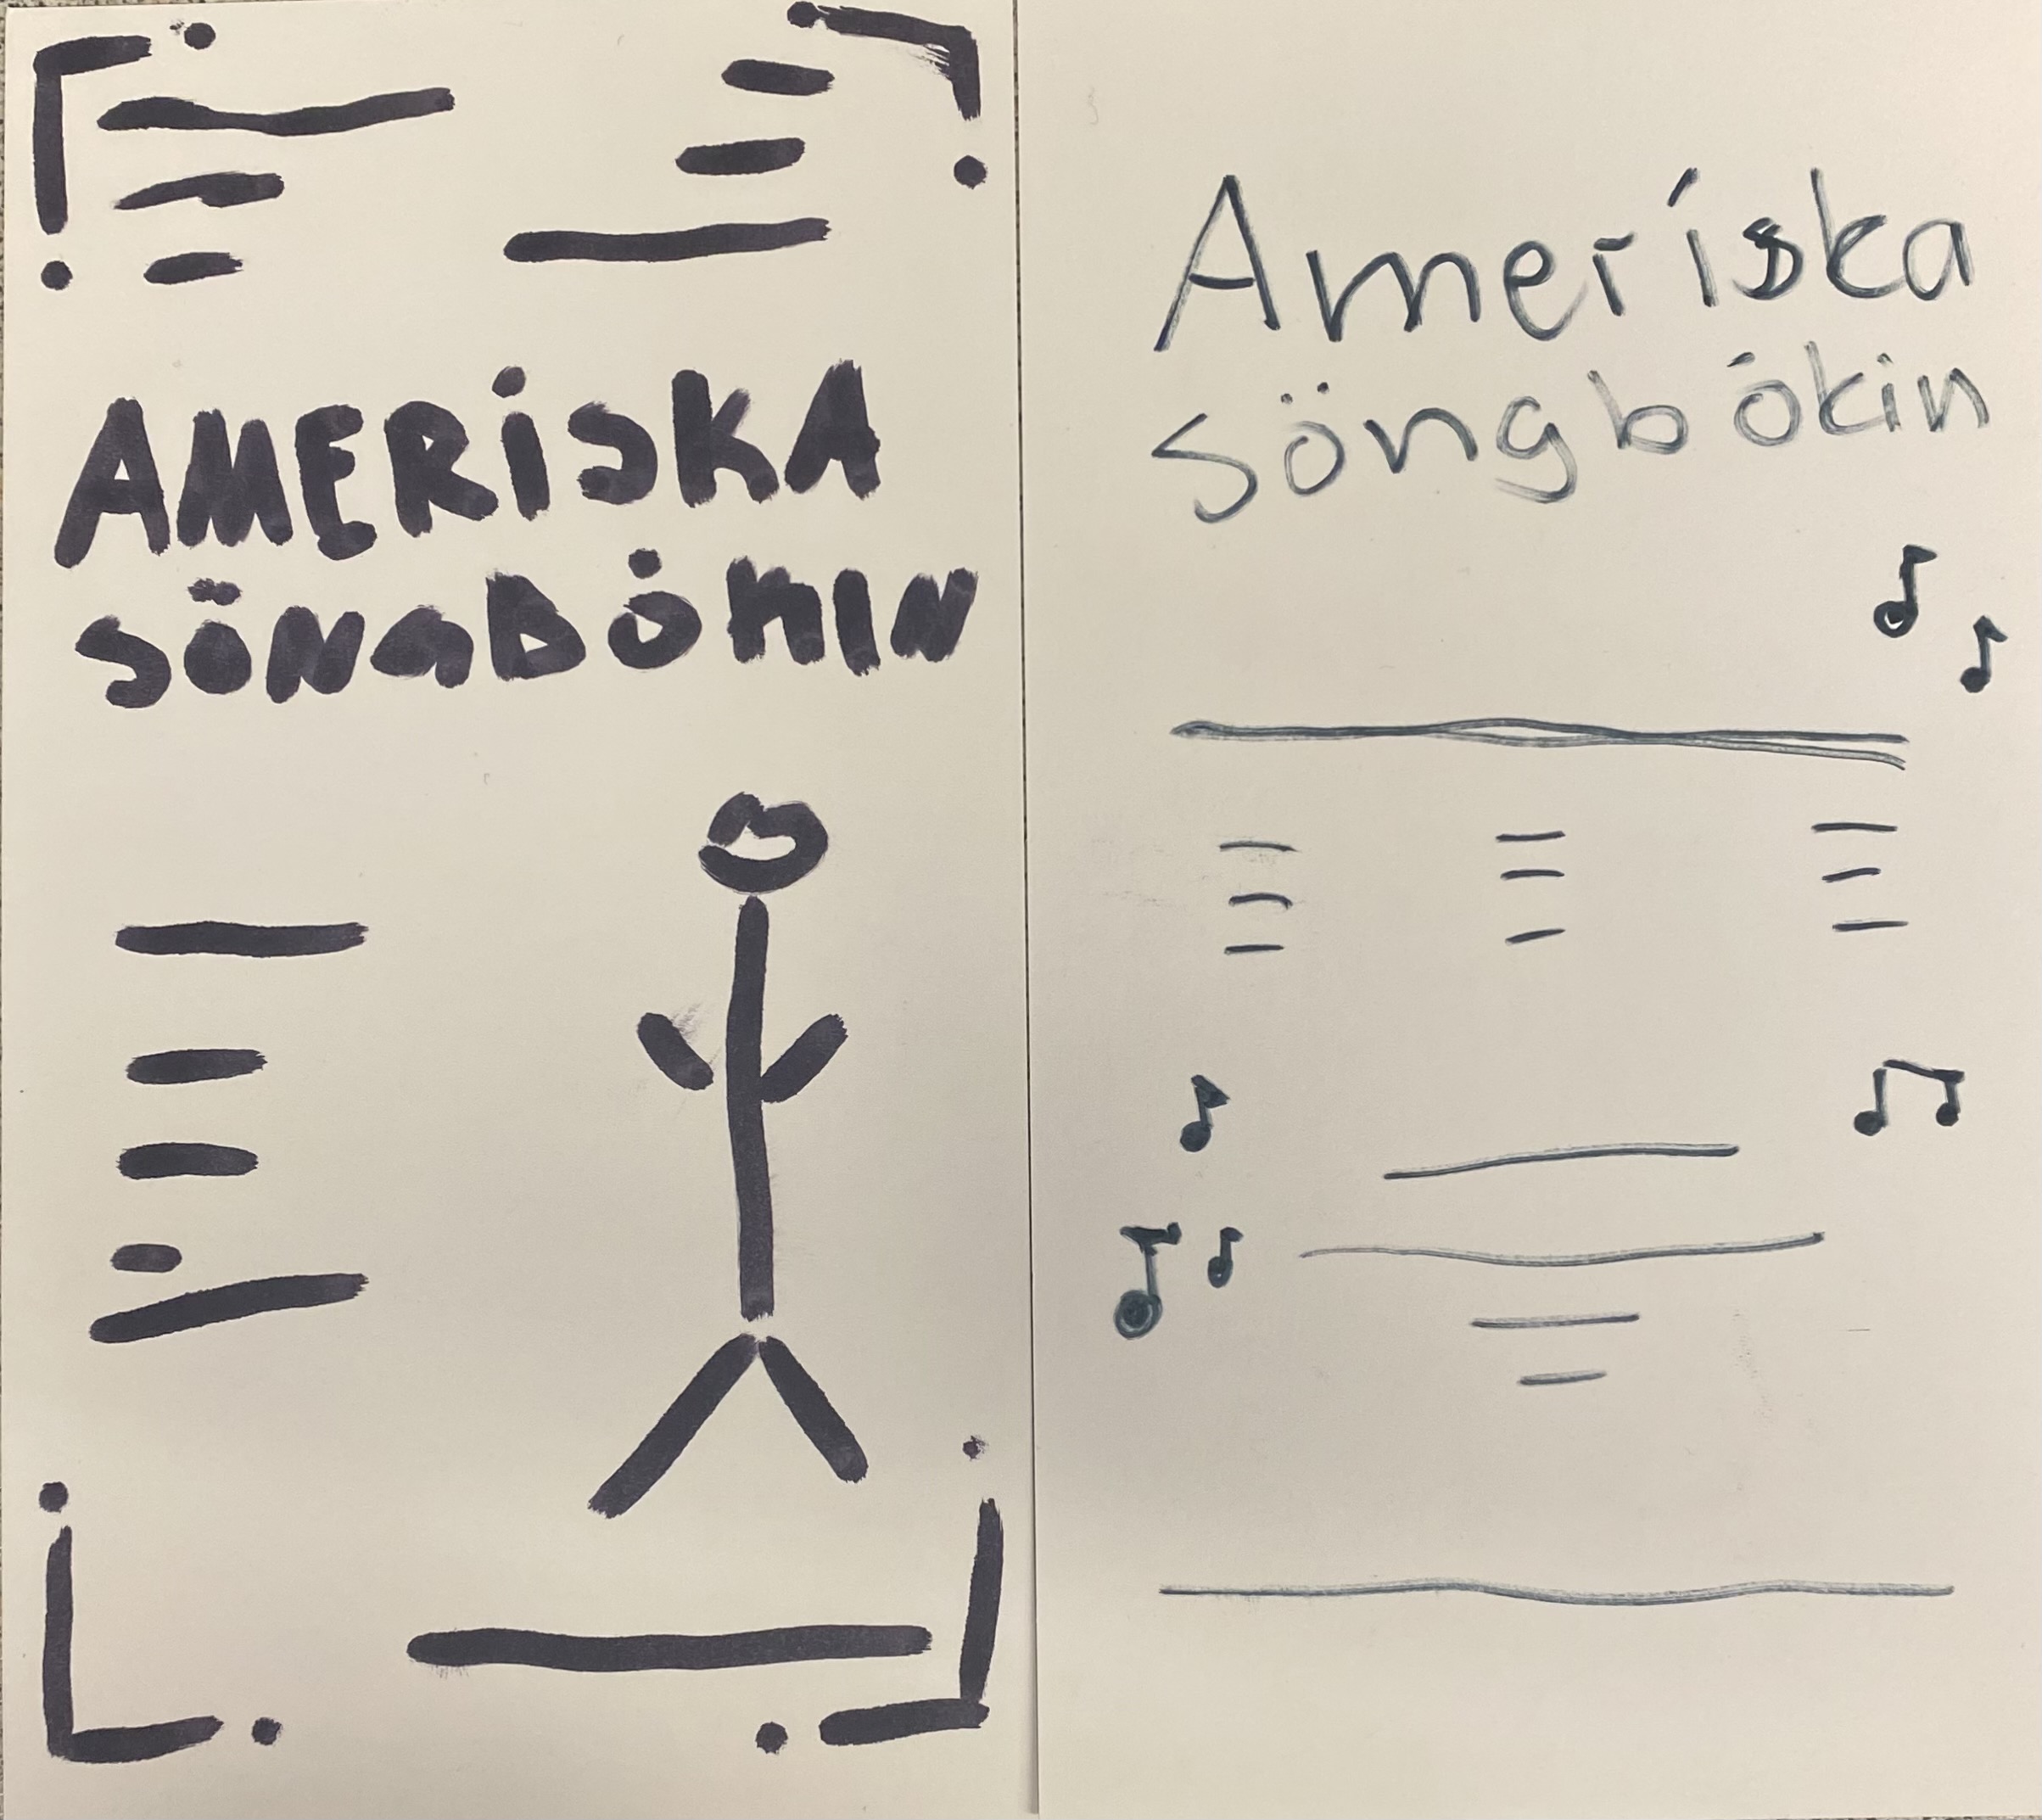 AMERíSKA
SÖNGBÓKIN
Ameríska
söngbókin